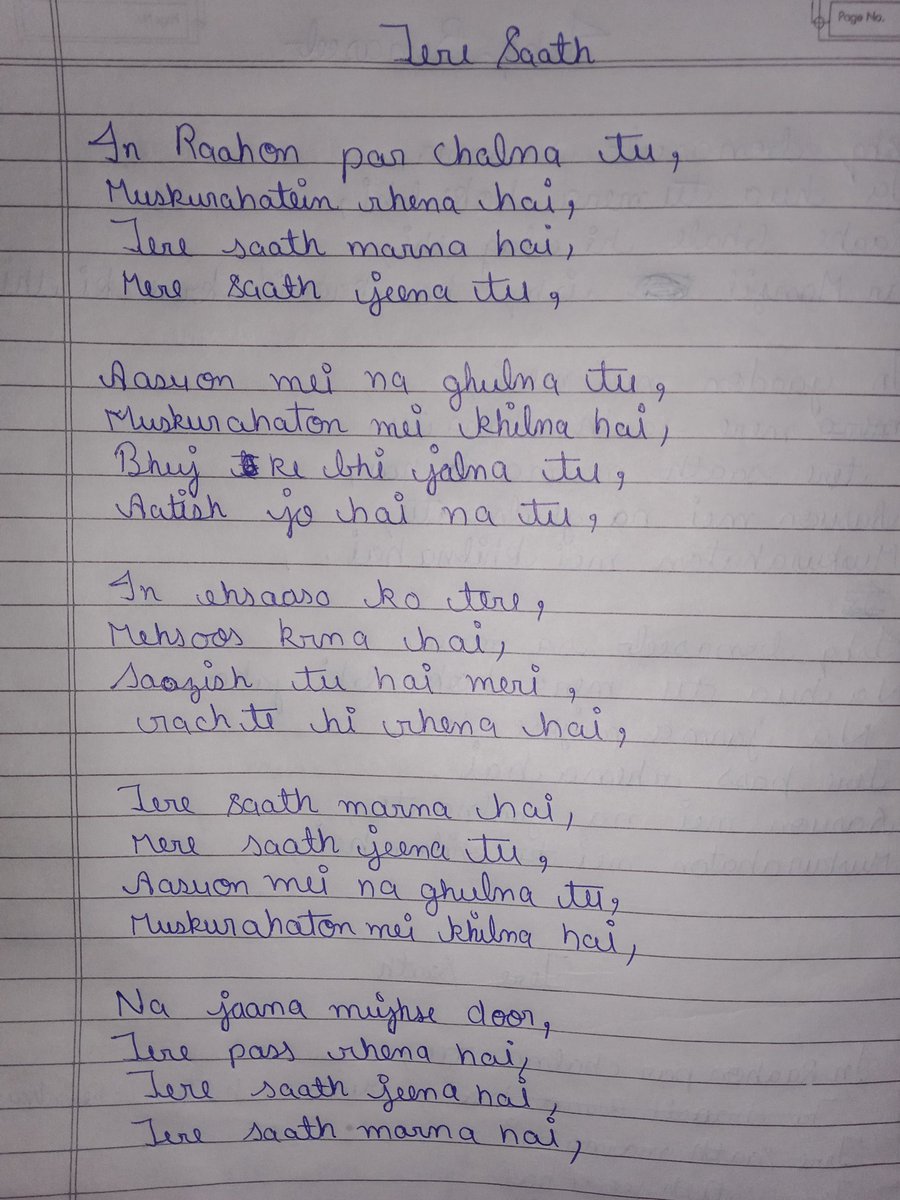 Page No.
Tere Saath
In Raahon par chalna tu,
Muskurahatein rhena hai,
Tere saath marna hai,
Mere saath jeena tu,
Aasuon mei na ghulna tu,
Muskurahaton mei khilna hai,
Bhuj ke bhi jalna tu,
Aatish jo hai na tu,
In ehsaaso ko tere,
Mehsoos krna hai,
Saazish tu hai meri,
rachte hi rhena hai,
Tere saath marna hai,
Mere saath jeena tu,
Aasuon mei na ghulna tu,
Muskurahaton mei khilna hai,
Na jaana mujhse door,
Tere pass rhena hai,
Tere saath jeena hai,
Tere saath marna hai,